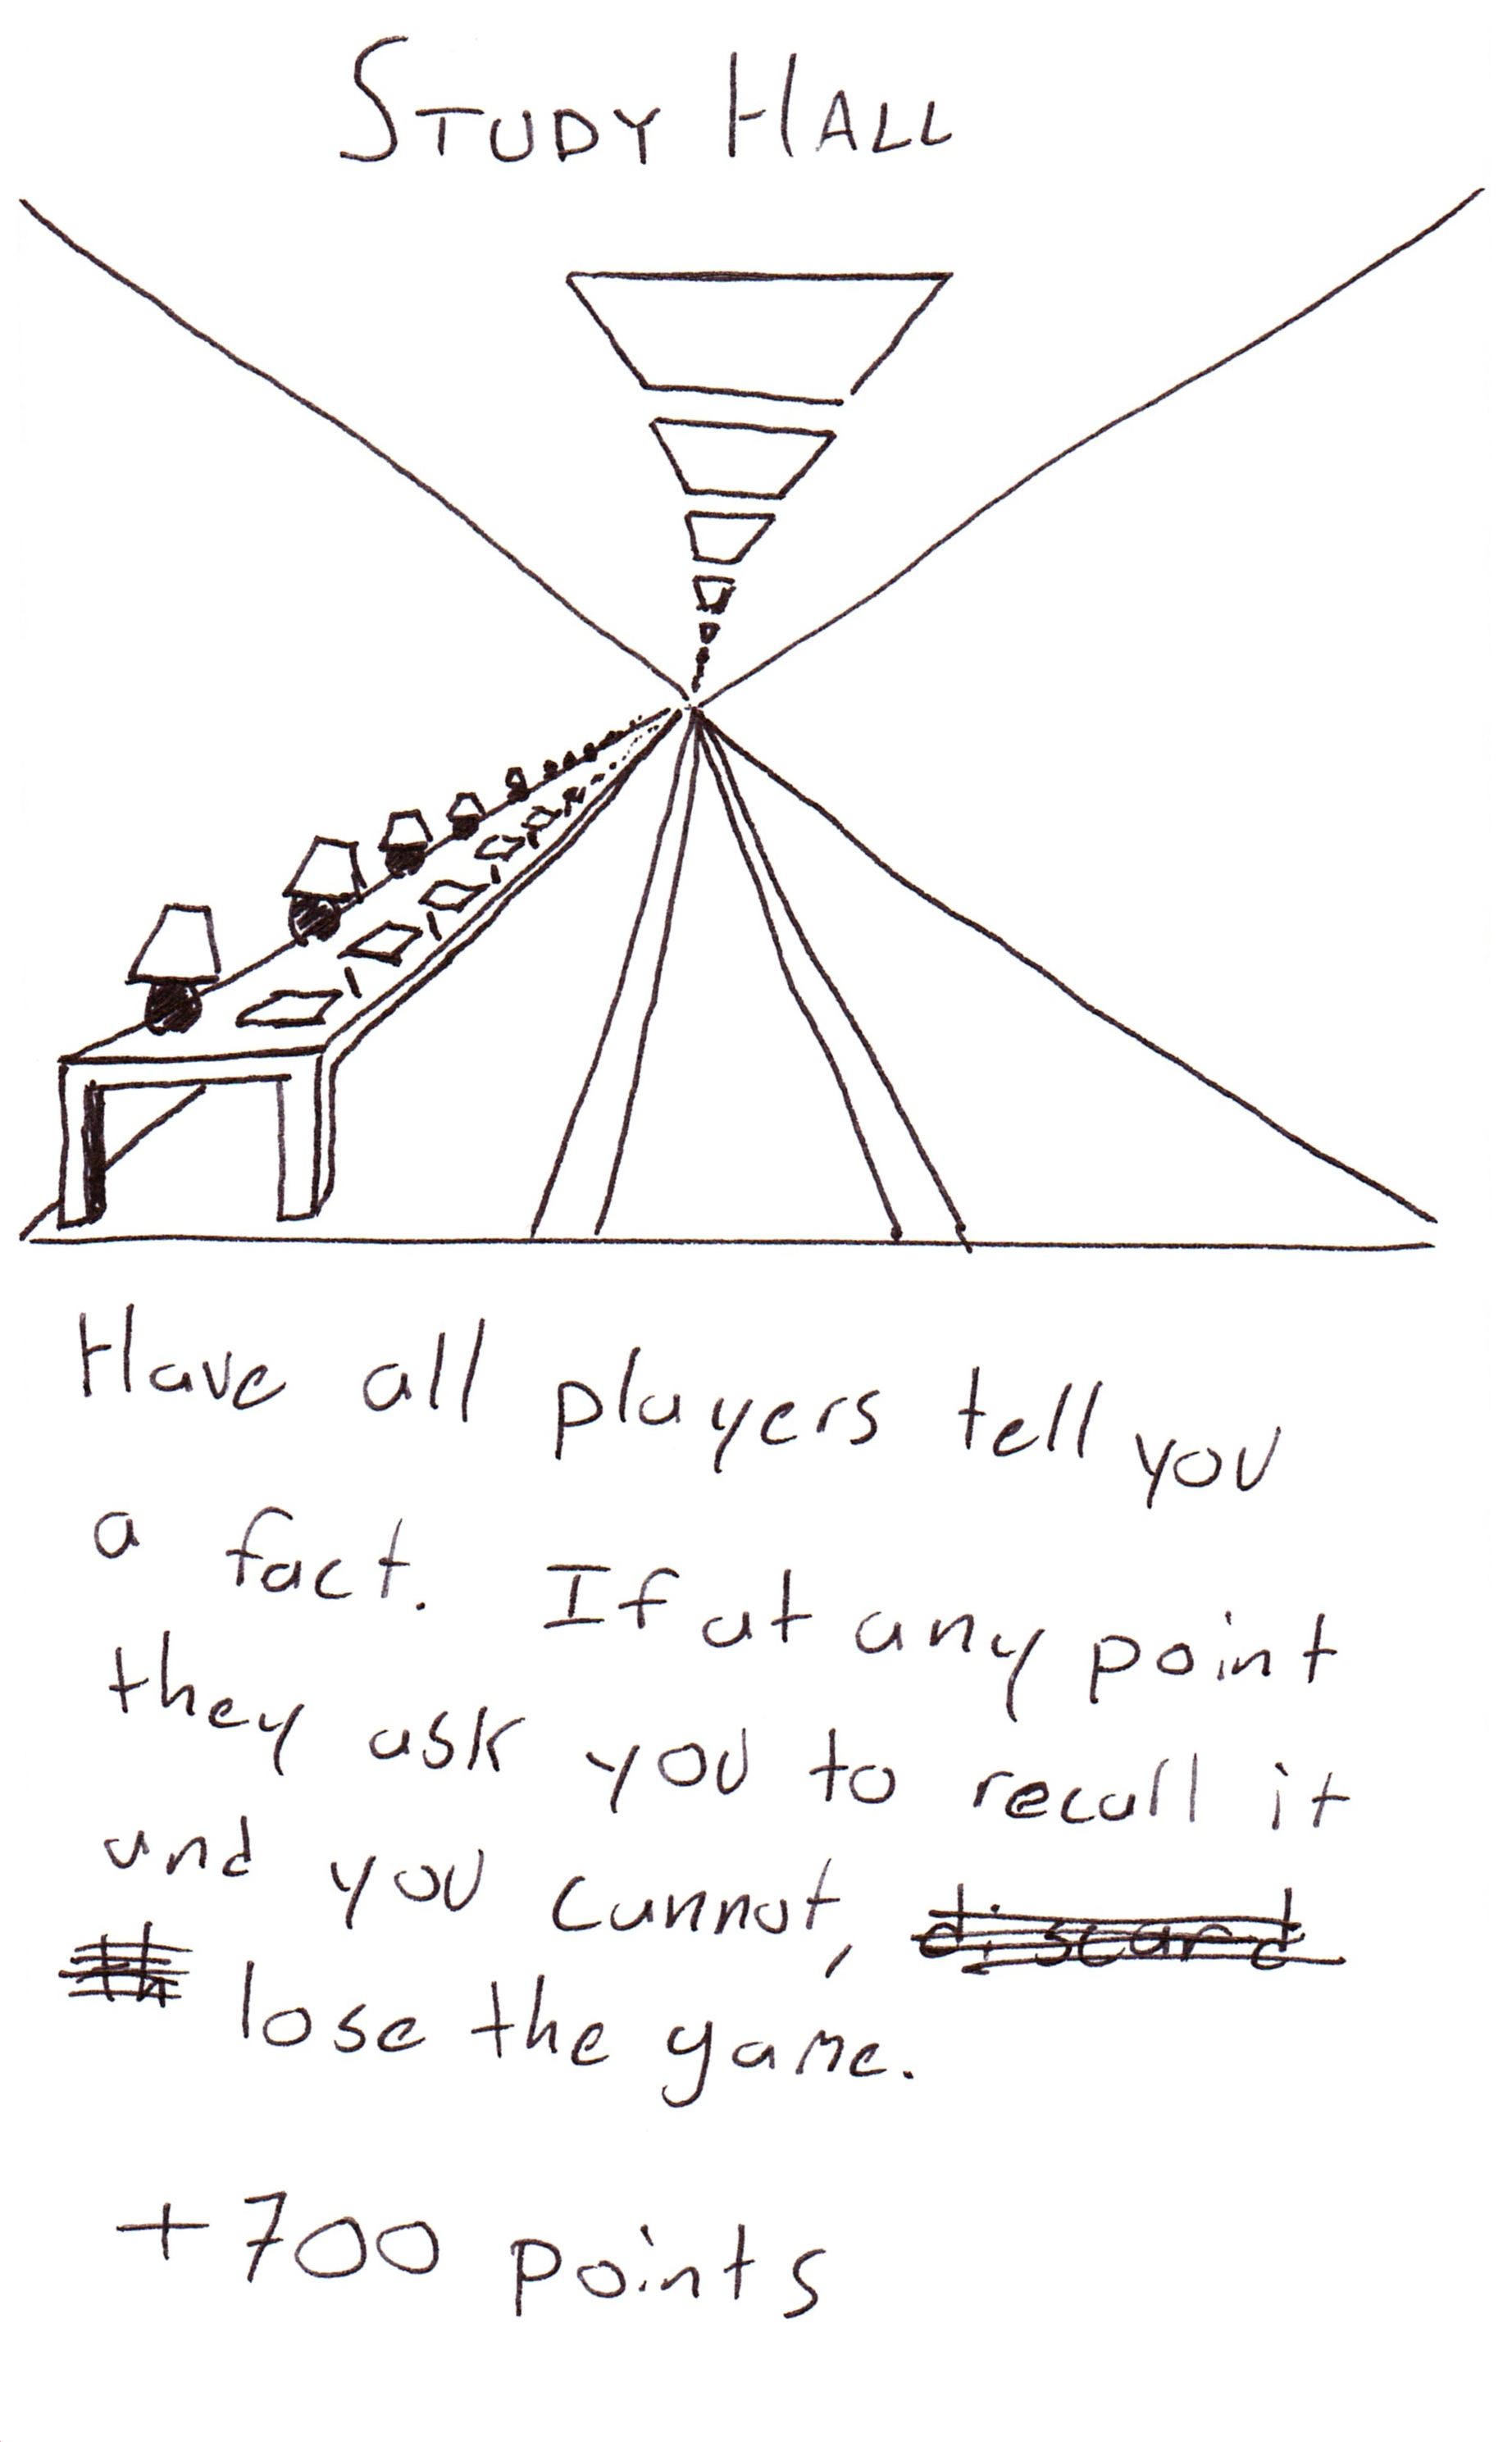 STUDY HALL
Have all players tell you
a fact. If at any point
they ask you to recall it
and you cannot, discard
lose the game.
+700 points